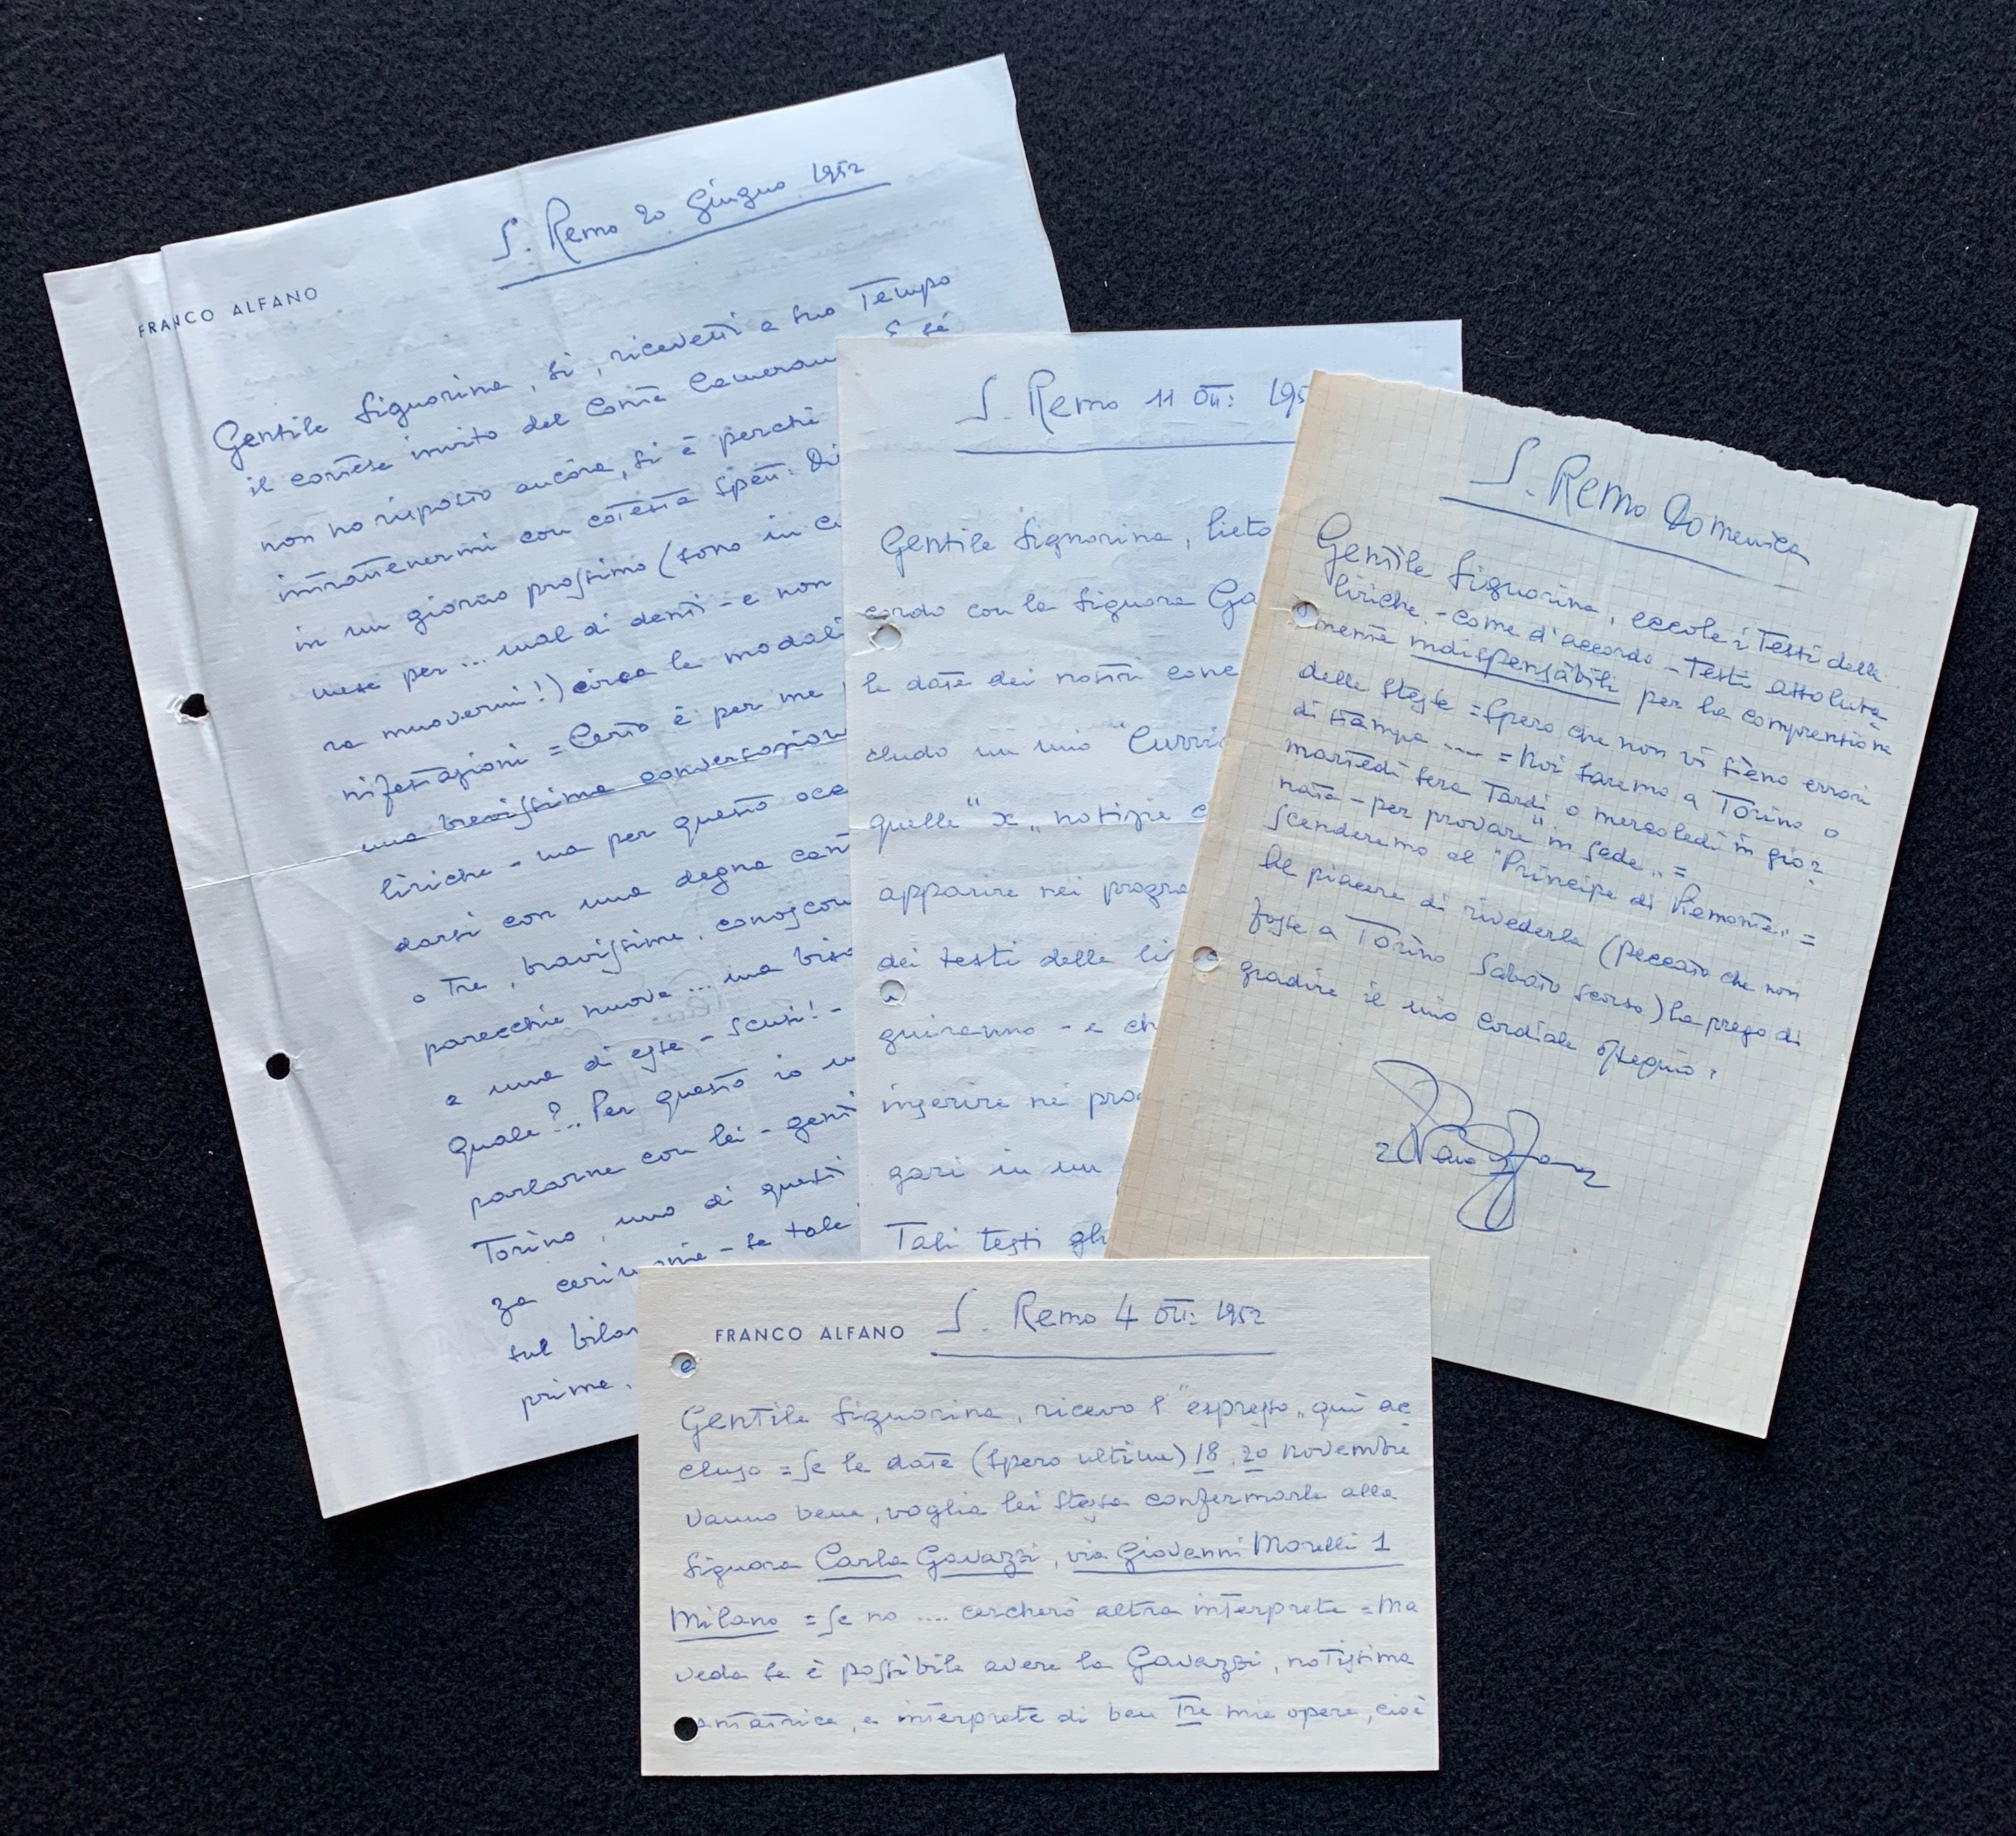 FRANCO ALFANO
S. Remo 20 Giugno 1952
Gentile Signorina, si, ricevetti a suo Tempo
il cortese invito del Conte Cameran S sé
non ho risposto ancora, si è perchè
intrattenermi con cotesta Spett: Di
in un giorno prossimo (sono in cu
mese per ... mal di denti - e non
ra muovermi!) circa le modali
nifestazioni = Certo è per me
una brevissima conversazion
liriche - ma per questo occ
darsi con una degna cant
o Tre, bravissime, conoscon
parecchie nuove ... ma biso
a una di esse - scusi! -
Quale?.. Per questo io v
parlarne con lei - genti
Torino, uno di questi
za cerimonie - se tale
sul bilan
prime.
S. Remo 11 Ott: 195
Gentile Signorina, lieto
cordo con la Signora Ga
le date dei nostri conc
cludo un mio "Curric
quelle "x" notizie c
apparire nei progra
dei testi delle li
guiranno - e ch
inserire nei prog
gari in un
Tali testi gli
S. Remo Domenica
Gentile Signorina, eccole i Testi delle
liriche. - come d'accordo - Testi assoluta
mente indispensàbili per la comprensione
delle stesse = Spero che non vi sieno errori
di stampa .... = Noi saremo a Torino o
martedì sera Tardi o mercoledì in gior
nata - per provare "in sede" =
Scenderemo al "Principe di Piemonte" =
Al piacere di rivederla (peccato che non
fosse a Torino Sabato scorso) la prego di
gradire il mio cordiale ossequio.
FRANCO ALFANO
S. Remo 4 Ott: 1952
Gentile Signorina, ricevo l'"espresso" qui ac
cluso = Se le date (spero ultime) 18, 20 novembre
vanno bene, voglia lei stessa confermarle alla
Signora Carla Gavazzi, via Giovanni Morelli 1
Milano = Se no .... cercherò altra interprete = Ma
veda se è possibile avere la Gavazzi, notissima
cantatrice, e interprete di ben Tre mie opere, cioè